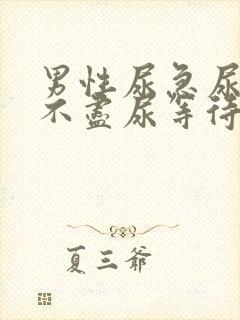 男性尿急尿
不盡尿等待
夏三爺